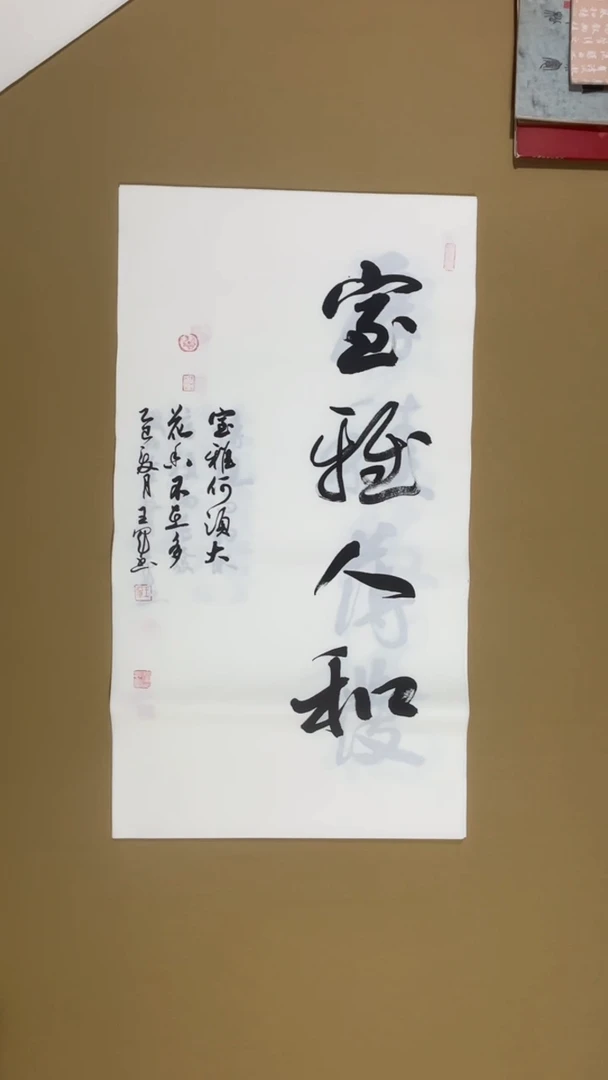 室雅人和
室雅何须大
花香不在多
乙巳夏月王